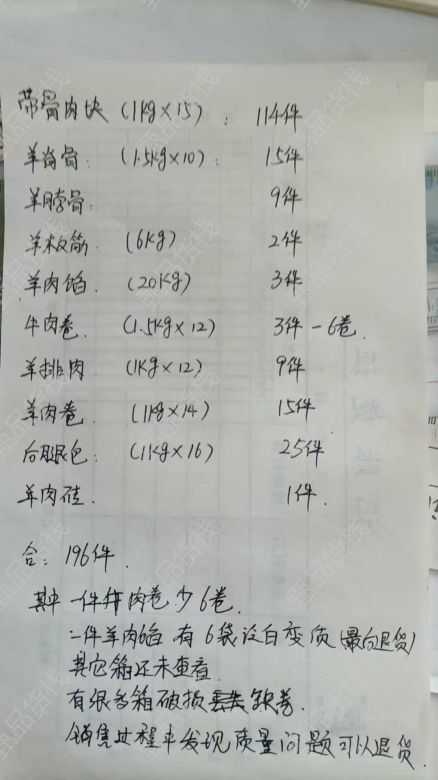 带骨肉块 (1kg×15): 114件
羊脊骨: (1.5kg×10): 15件
羊脖骨: 9件
羊板筋 (6kg) 2件
羊肉馅 (20kg) 3件
牛肉卷. (1.5kg×12) 3件-6卷.
羊排肉 (1kg×12) 9件
羊肉卷. (1kg×14) 15件
后腿包: (1kg×16) 25件
羊肉 . 1件.
合: 196件.
其中一件牛肉卷少6卷.
一件羊肉馅有6袋 变质 退货)
其它箱还未查看.
有很多箱破损 缺卷.
销售过程中发现质量问题可以退货.